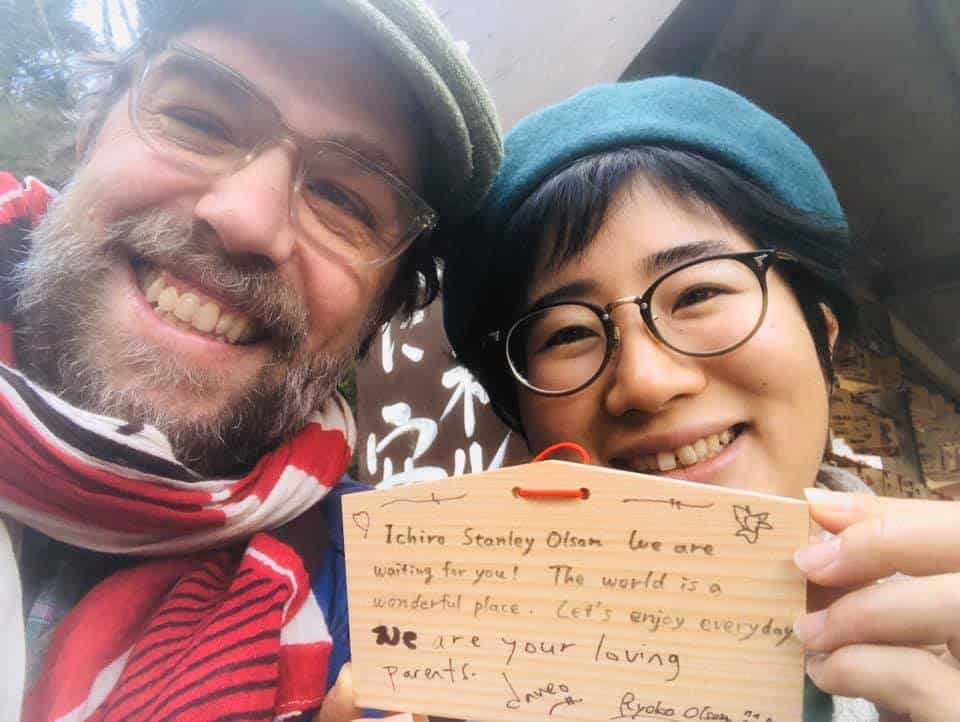 に
安
Ichiro Stanley Olson We are
waiting for you! The world is a
wonderful place. Let's enjoy everyday
We are your loving
parents. Ryoko Olson